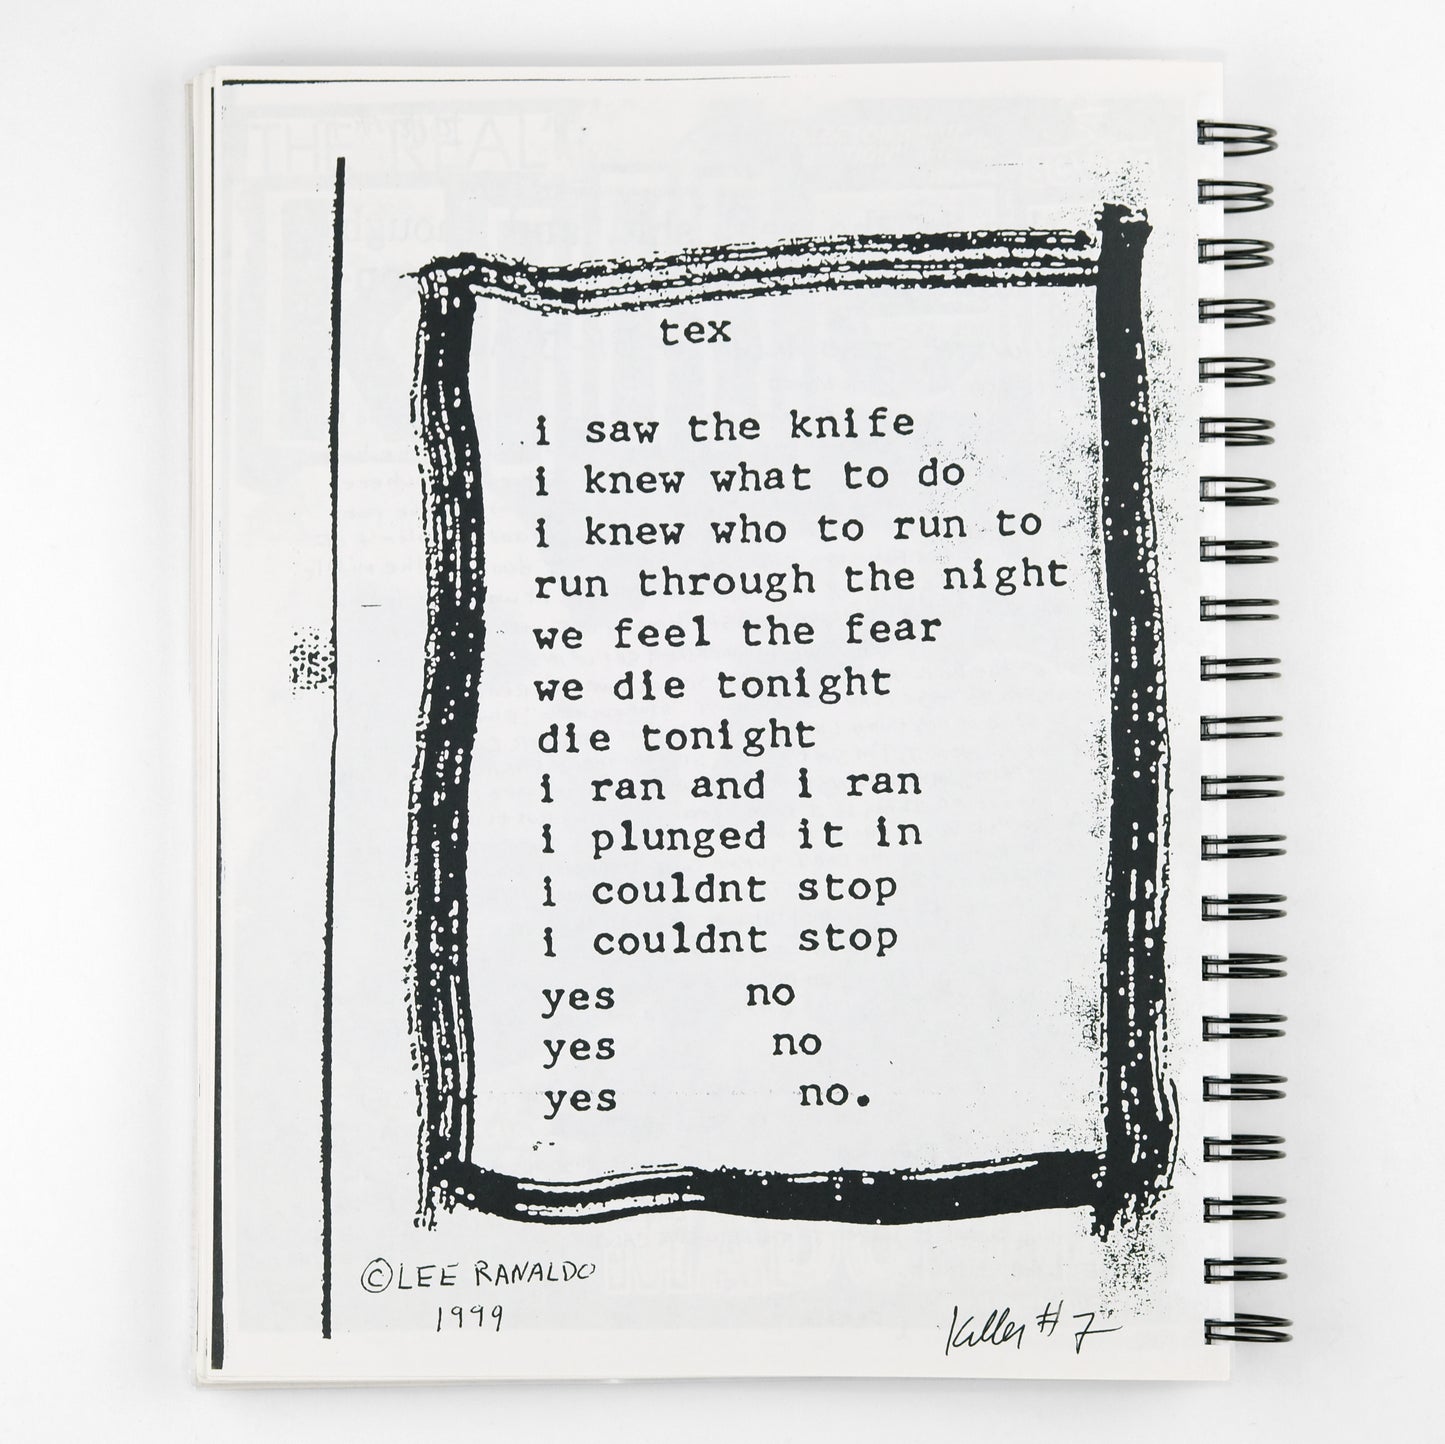 tex
i saw the knife
i knew what to do
i knew who to run to
run through the night
we feel the fear
we die tonight
die tonight
i ran and i ran
i plunged it in
i couldnt stop
i couldnt stop
yes no
yes no
yes no.
©LEE RANALDO
1999
Killer #7